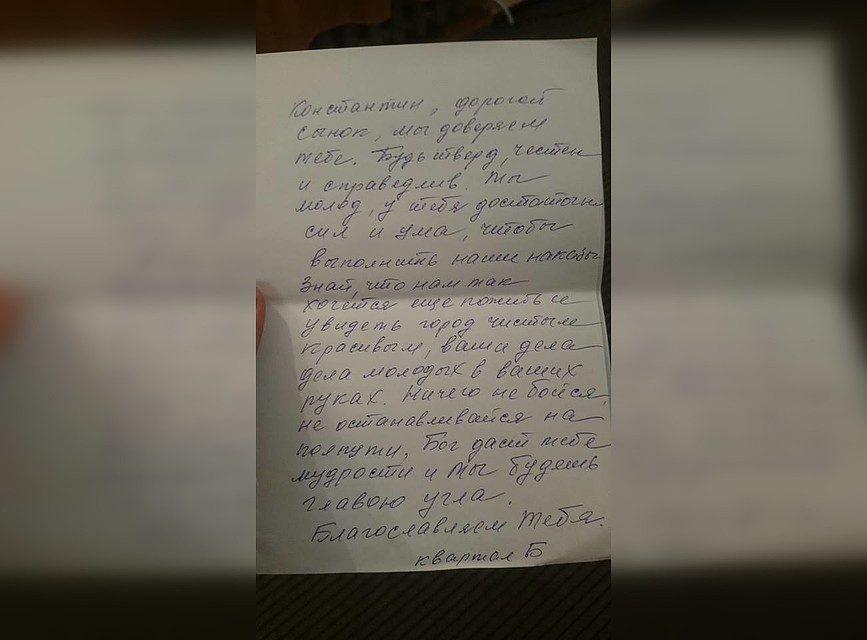 Константин, дорогой
сынок, мы доверяем
тебе. Будь твёрд, честен
и справедлив. Ты
молод, у тебя достаточно
сил и ума, чтобы
выполнить наши наказы
Знай, что нам так
хочется еще пожить и
увидеть город чистым
красивым, ваши дела
дела молодых в ваших
руках. Ничего не бойся,
не останавливайся на
полпути, Бог даст тебе
мудрости и ты будешь
главою угла.
Благославляем Тебя.
квартал Б